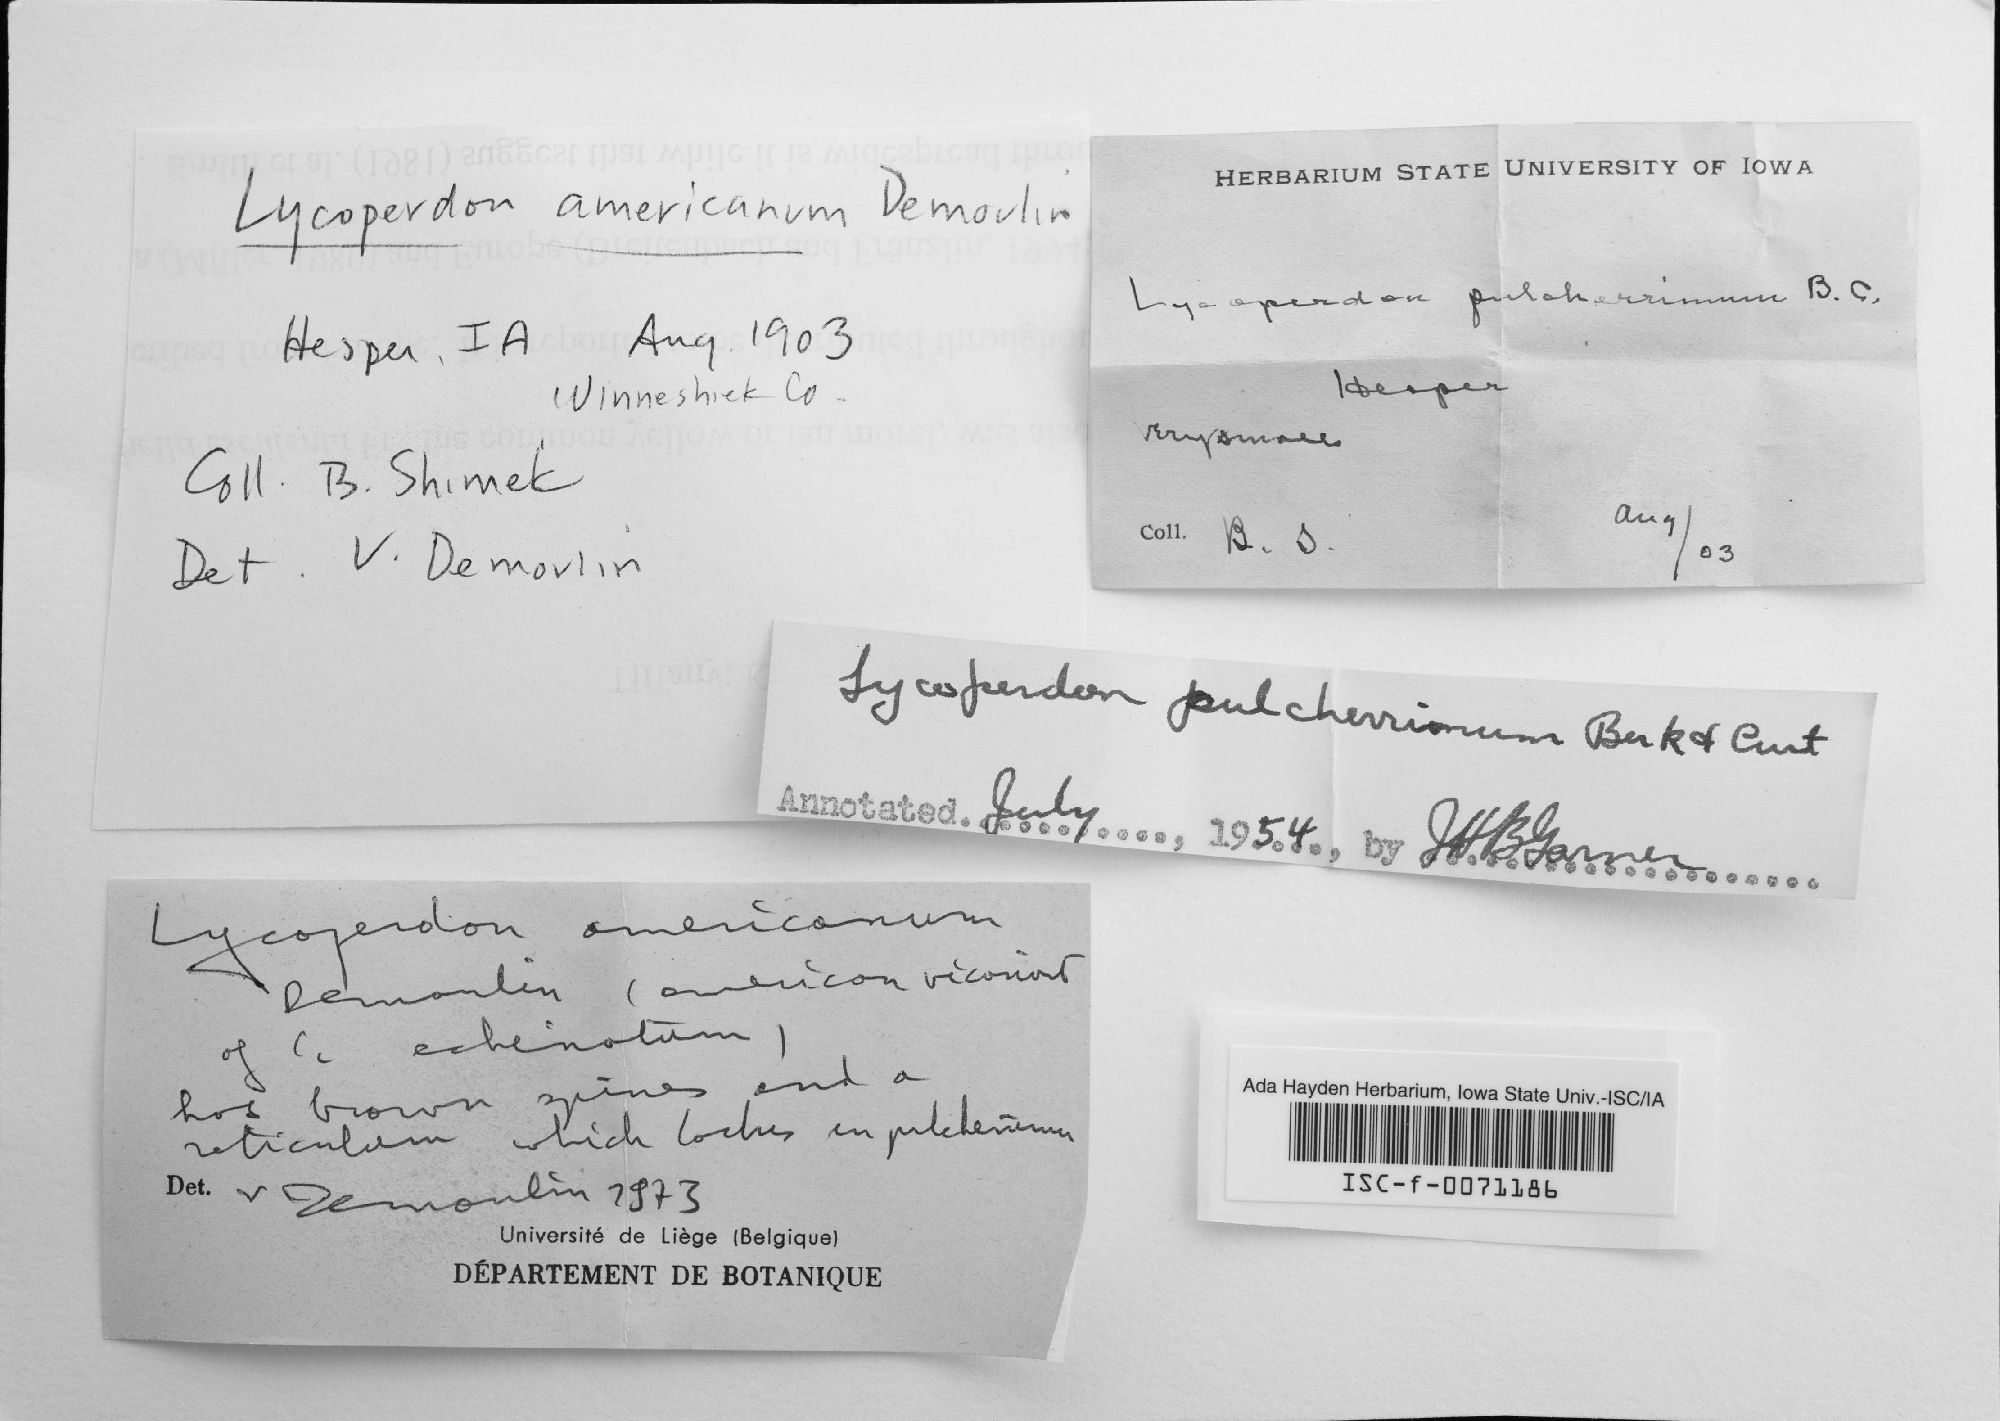 Lycoperdon americanum Demoulin
Hesper, IA Aug. 1903
Winneshiek Co.
Coll. B. Shimek
Det. V. Demoulin
HERBARIUM STATE UNIVERSITY OF IOWA
Lycoperdon pulcherrimum B. C.
Hesper
very small
Coll. B. S. Aug/03
Lycoperdon pulcherrimum Berk & Curt
Annotated. July, 1954, by JHB Garner
Lycoperdon americanum
Demoulin (american vicariant
of L. echinatum)
has brown spines and a
reticulum which lackes in pulcherrimum
Det. V Demoulin 1973
Université de Liège (Belgique)
DÉPARTEMENT DE BOTANIQUE
Ada Hayden Herbarium, Iowa State Univ.-ISC/IA
ISC-f-0071186